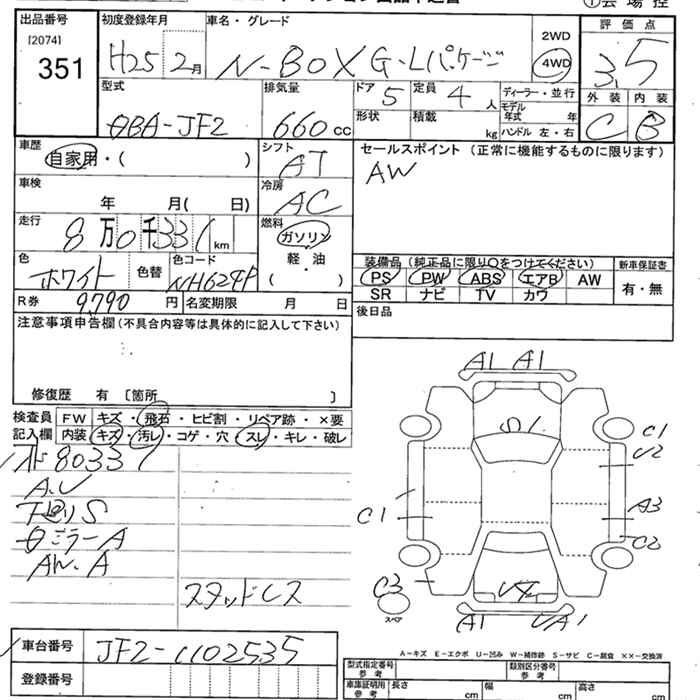 出品番号 初度登録年月 車名・グレード 評価点
[2074]
351
H25 2月 N-BOX G・Lパッケージ 2WD 4WD 3.5
型式 排気量 ドア 5 定員 4 人 ディーラー・並行 外装 内装
DBA-JF2 660 cc 形状 積載 kg モデル年式 年 C B
ハンドル 左・右
車歴 自家用・( ) シフト AT セールスポイント (正常に機能するものに限ります)
AW
車検 年 月( 日) 冷房 AC
走行 8万0千331 km 燃料 ガソリン 軽・油 ( )
色 ホワイト 色替 色コード NH624P
装備品 (純正品に限り○をつけてください) 新車保証書
PS PW ABS エアB AW 有・無
SR ナビ TV カワ
R券 9,790 円 名変期限 月 日
後日品
注意事項申告欄(不具合内容等は具体的に記入して下さい)
修復歴 有 [箇所 ]
検査員記入欄 FW キズ・飛石・ヒビ割・リペア跡・×要
内装 キズ・汚レ・コゲ・穴・スレ・キレ・破レ
80331
A.U
スタッドレス
A1 A1
S1
C1
U2
C1
A3
C2
C3
スペア
A1 UA1
A-キズ E-エクボ U-凹み W-補修跡 S-サビ C-腐食 ××-交換済
車台番号 JF2-1102535
登録番号
型式指定番号 参考 類別区分番号 参考
車庫証明用 参考 長さ cm 幅 cm 高さ cm